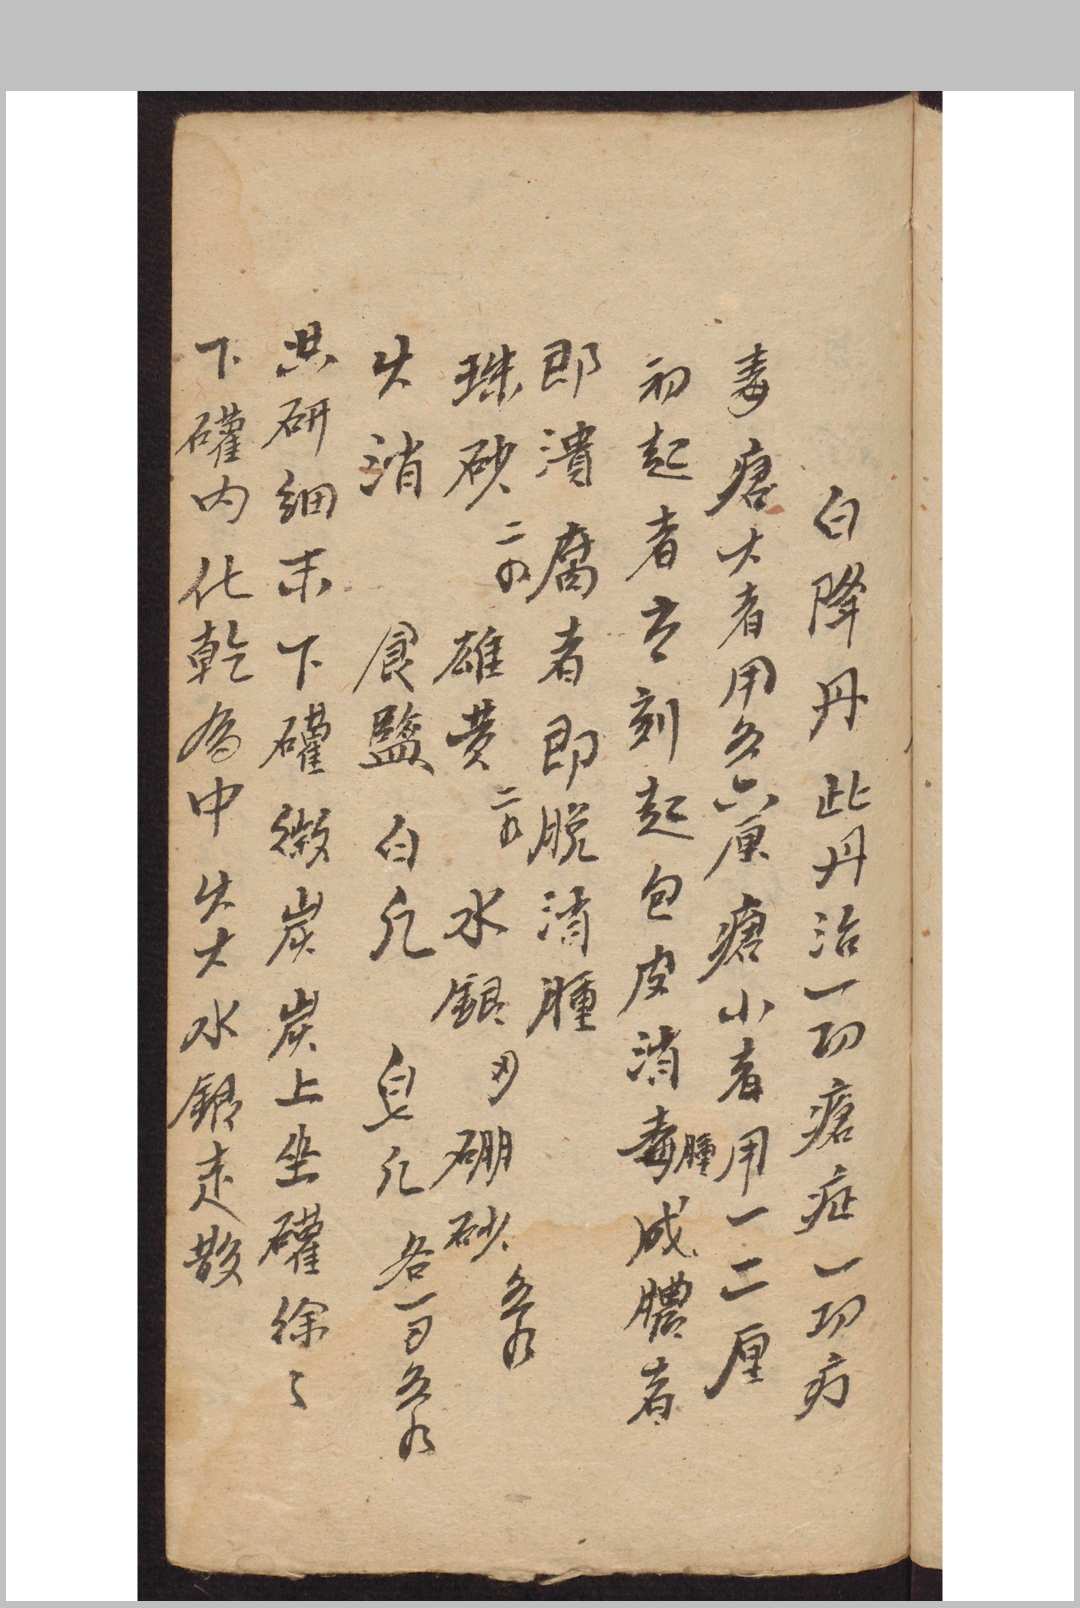 白降丹 此丹治一切瘡症一切疔
毒瘡大者用五六厘瘡小者用一二厘
初起者立刻起包皮消毒腫成膿者
即潰腐者即脫消腫
珠砂二錢 雄黄二錢 水銀一両 硼砂五錢
火消 食盬 白凡 皂凡 各一両五錢
共研細末下礶微炭炭上坐礶徐〻
下礶内化乾為中火大水銀走散